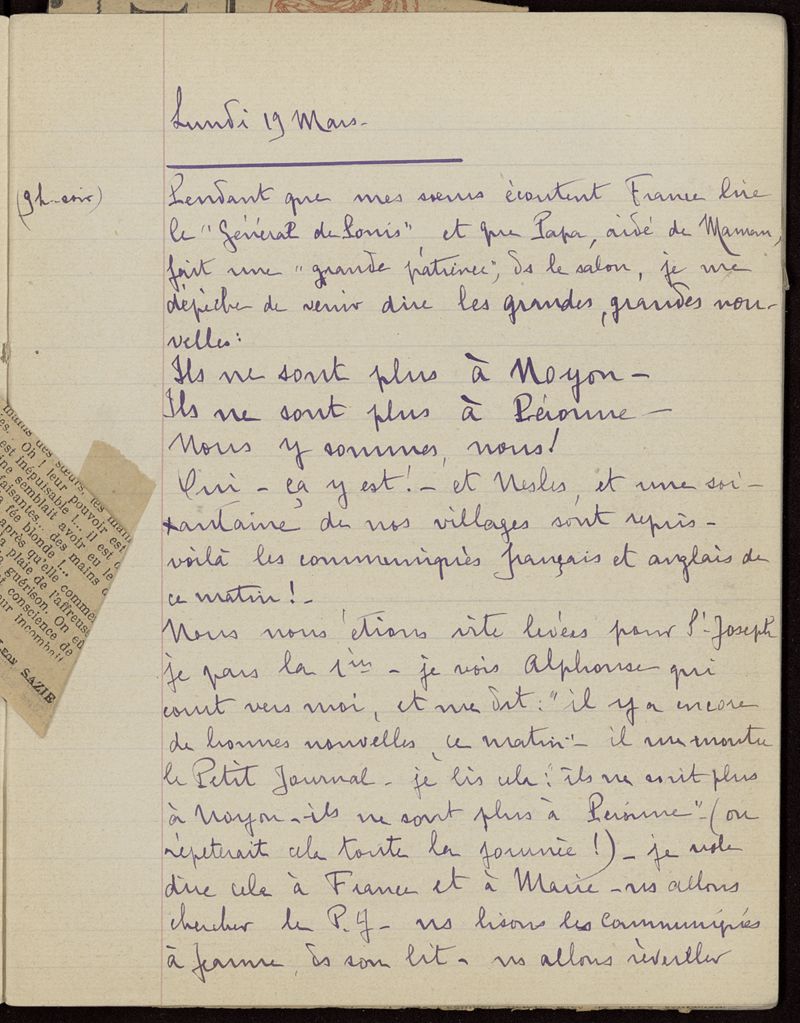 Lundi 19 Mars-
(9h-soir)
Pendant que mes sœurs écoutent France lire
le "Général de Sonis" et que Papa, aidé de Maman,
fait une "grande patience", ds le salon, je me
dépêche de venir dire les grandes, grandes nou-
velles:
Ils ne sont plus à Noyon-
Ils ne sont plus à Péronne-
Nous y sommes, nous!
Oui - ça y est! - et Nesles, et une soi-
xantaine de nos villages sont repris-
voilà les communiqués français et anglais de
ce matin! -
Nous nous étions vite levées pour St-Joseph
je pars la 1ère - je vois Alphonse qui
court vers moi, et me dit: "il y a encore
de bonnes nouvelles, ce matin" - il me montre
le Petit Journal - je lis cela: "ils ne sont plus
à Noyon - ils ne sont plus à Péronne" - (on
répèterait cela toute la journée!) - je vole
dire cela à France et à Marie - ns allons
chercher le P.J - ns lisons les communiqués
à Jeanne, ds son lit - ns allons réveiller
mains des sœurs, les
Oh ! leur pouvoir est
est inépuisable !... il est
semblait avoir eu le
faisantes... des mains
fée blonde !...
après qu'elle
la plaie de l'affreuse
guérison. On
conscience de
incombait
LÉON SAZIE